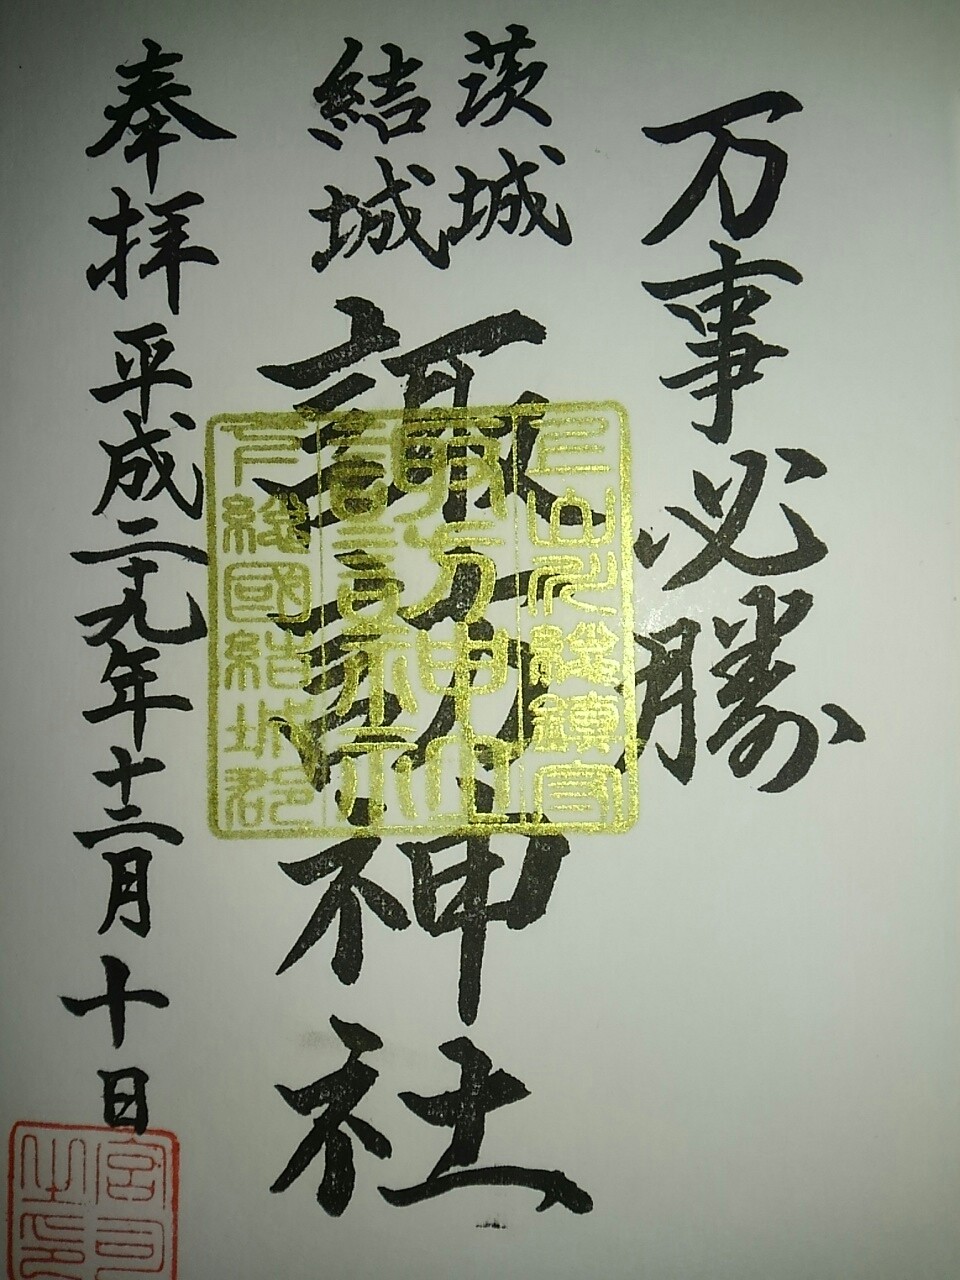 万事必勝
茨城
結城
諏訪神社
上山川 鎮守
諏訪神社
下総國結城郡
奉拝 平成二十九年十二月十日
宮司之印